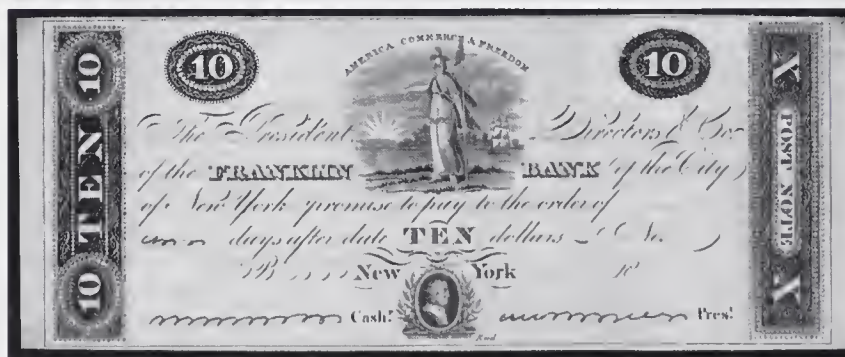 10 TEN 10
10
AMERICA COMMERCE & FREEDOM
10
X POST NOTE X
The President Directors & Co.
of the FRANKLIN BANK of the City
of New York promise to pay to the order of
days after date TEN dollars No.
New York
Cash.r Pres.t